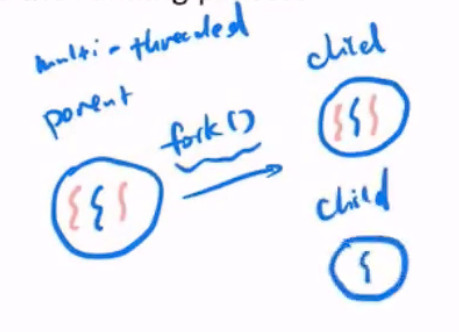 multi-threaded
parent
fork()
child
child